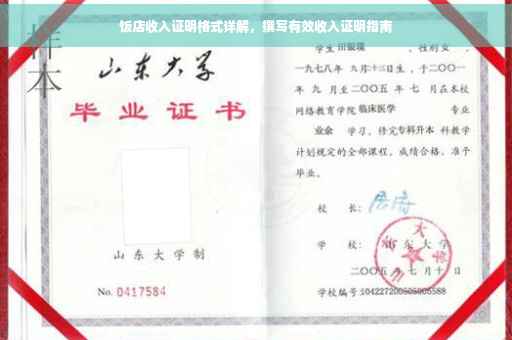 饭店收入证明格式详解，撰写有效收入证明指南
样本
山东大学
毕业证书
山东大学制
No. 0417584
学生 田银璞 ，性别女 ，
一九七八年 九月十三日生，于二〇〇一
年 九 月至二〇〇五 年 七 月在本校
网络教育学院 临床医学 专业
业余 学习，修完专科升本 科教学
计划规定的全部课程，成绩合格，准予
毕业。
校 长：
学 校： 山东大学
二〇〇五 年 七 月 十 日
学校编号：104227200505005588